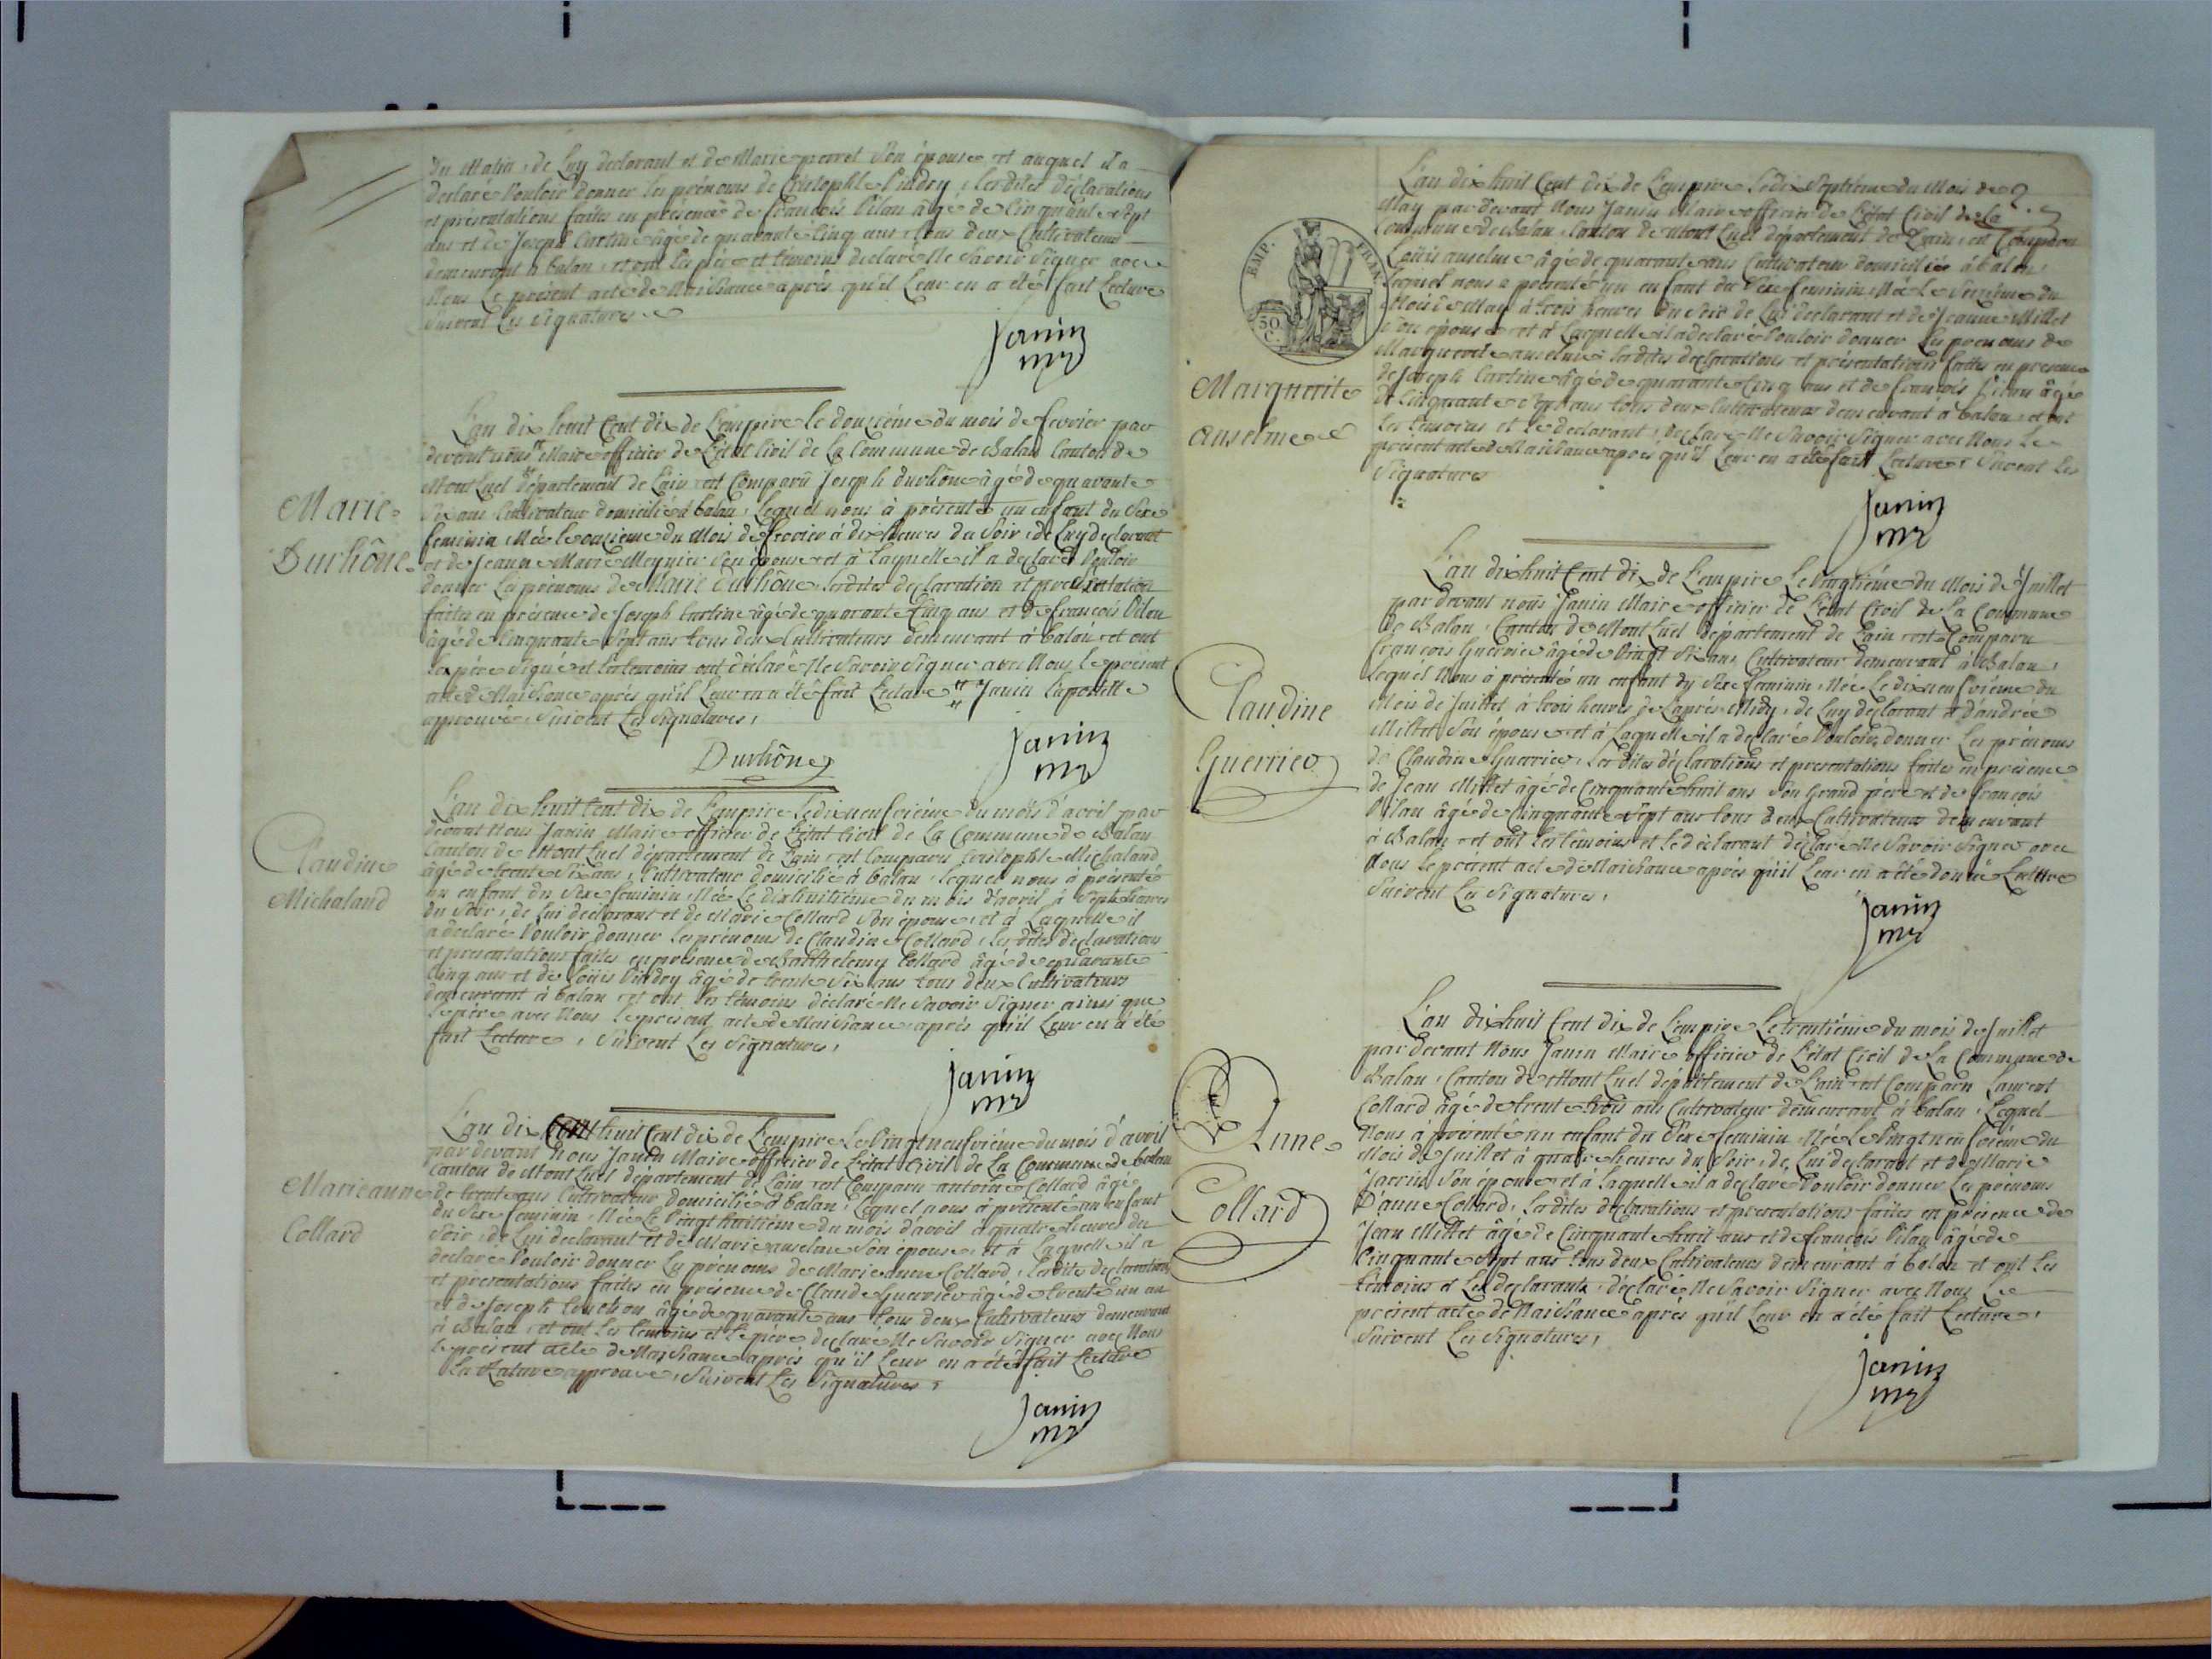 du Matin, de Luy declarant et de Marie perret Son épouse et auquel il a
declaré Vouloir donner les prénoms de Cristophle Pindry, les dites déclarations
et présentations faites en présence de françois Pilan âgé de Cinquante Sept
ans et de Joseph Cartine âgé de quarante Cinq ans tous deux Cultivateurs
demeurant à balan, et ont les père et témoins declaré Ne Savoir Signer avec
Nous Le présent acte de Naissance après qu'il Leur en a été fait Lecture
Suivent Les Signatures
Janin
mr
Marie
Durhône
L'an dix huit Cent dix de L'empire le douzième du mois de fevrier par
devant nous Maire officier de L'état Civil de la Commune de Balan Canton de
MontLuel département de L'ain est Comparû Joseph durhône âgé de quarante
Six ans Cultivateur domicilié à balan, Lequel nous à présenté un enfant du Sexe
feminin Née le onzieme du Mois de fevrier à dix heures du Soir, de Luy declarant
et de Jeanne Marie Meynier Son épouse et à Laquelle il a declaré Vouloir
donner les prénoms de Marie durhône, lesdites declaration et présentation
faites en présence de Joseph Cartine âgé de quarante Cinq ans et de françois Pilan
âgé de Cinquante Sept ans tous deux Cultivateurs demeurant à balan et ont
le père Signé et les temoins ont déclaré Ne Savoir Signer avec Nous le présent
acte de Naissance après qu'il Leur en a été fait Lecture Janin
approuvé, Suivent Les Signatures,
Durhône
Janin
mr
Claudine
Michaland
L'an dix huit Cent dix de L'empire Le dix neufvième du mois d'avril par
devant Nous Janin Maire officier de L'état Civil de La Commune de Balan
Canton de MontLuel département de L'ain est Comparu Cristophle Michaland
âgé de trente Six ans, Cultivateur domicilié à balan, lequel nous à présenté
un enfant du Sexe feminin, Née Le dixhuitième du mois d'avril à Sept heures
du Soir, de lui declarant et de Marie Collard Son épouse, et à Laquelle il
a declaré Vouloir donner les prénoms de Claudine Collard, les dites declarations
et présentations faites en présence de Barthelemy Collard âgé de quarante
Cinq ans et de Loüis Pindry âgé de trente Six ans tous deux Cultivateurs
demeurant à balan et ont les témoins déclaré Ne Savoir Signer ainsi que
le père avec Nous le présent acte de Naissance après qu'il Leur en a été
fait Lecture, Suivent Les Signatures,
Janin
mr
Marieanne
Collard
L'an dix huit Cent dix de L'empire Le Vingt neufvième du mois d'avril
par devant Nous Janin Maire officier de L'état Civil de La Commune de balan
Canton de MontLuel département de L'ain est Comparu antoine Collard âgé
de trente ans Cultivateur domicilié à balan, Lequel nous à présenté un enfant
du Sexe feminin, Née Le Vingt huitième du mois d'avril à quatre heures du
Soir, de Lui declarant et de Marie anselme Son épouse, et à Laquelle il a
declaré Vouloir donner Les prénoms de Marieanne Collard, lesdites declarations
et présentations faites en présence de Claude Guerrier âgé de trente un an
et de Joseph âgé de quarante ans tous deux Cultivateurs demeurant
à Balan, et ont les témoins et le père declaré Ne Savoir Signer avec Nous
le présent acte de Naissance après qu'il Leur en a été fait Lecture
La Rature approuvé, Suivent Les Signatures,
Janin
mr
EMP. FRAN.
50
C.
Marguerite
anselme
L'an dix huit Cent dix de L'empire Le dix Septième du Mois de
May par devant Nous Janin Maire officier de L'état Civil de La
Commune de Balan Canton de MontLuel département de L'ain, est Comparu
Loüis anselme âgé de quarante ans Cultivateur domicilié à balan,
lequel nous a présenté un enfant du Sexe feminin, Née Le Seizième du
Mois de May à trois heures du Soir de Lui declarant et de Jeanne Millet
Son épouse et à Laquelle il a declaré Vouloir donner Les prénoms de
Marguerite anselme lesdites declarations et présentations faites en présence
de Joseph Cartine âgé de quarante Cinq ans et de françois Pilan âgé
de Cinquante Sept ans tous deux Cultivateurs demeurant à balan, et ont
Les témoins et Le declarant, declaré Ne Savoir Signer avec Nous Le
présent acte de Naissance après qu'il Leur en a été fait Lecture, Suivent Les
Signatures
Janin
mr
Claudine
Guerrier
L'an dix huit Cent dix de L'empire Le Vingtième du Mois de Juillet
par devant nous Janin Maire officier de L'état Civil de La Commune
de Balan, Canton de MontLuel département de L'ain est Comparu
françois Guerrier âgé de Vingt Six ans, Cultivateur demeurant à Balan,
lequel Nous à présenté un enfant du Sexe feminin, Née Le dixneufvième du
Mois de Juillet à trois heures de L'après Midy, de Luy declarant et d'andrée
Millet Son épouse et à Laquelle il a declaré Vouloir donner Les prénoms
de Claudine Guerrier, Les dites déclarations et présentations faites en présence
de Jean Millet âgé de Cinquante huit ans Son Grand père et de françois
Pilan âgé de Cinquante Sept ans tous deux Cultivateurs demeurant
à Balan et ont les témoins et le déclarant déclaré Ne Savoir Signer avec
Nous le présent acte de Naissance après qu'il Leur en a été donné Lecture
Suivent Les Signatures,
Janin
mr
Anne
Collard
L'an dix huit Cent dix de L'empire Le trentième du mois de Juillet
par devant Nous Janin Maire officier de L'état Civil de La Commune de
Balan, Canton de MontLuel département de L'ain est Comparu Laurent
Collard âgé de trente trois ans Cultivateur demeurant à balan, Lequel
Nous à présenté un enfant du Sexe feminin, Née Le Vingt neufvième du
Mois de Juillet à quatre heures du Soir, de Lui declarant et de Marie
Jarrin Son épouse et à Laquelle il a declaré Vouloir donner Les prénoms
D'anne Collard, Lesdites declarations et présentations faites en présence de
Jean Millet âgé de Cinquante huit ans et de françois Pilan âgé de
Cinquante Sept ans tous deux Cultivateurs demeurant à balan et ont Les
témoins et Les declarants, déclaré Ne Savoir Signer avec Nous Le
présent acte de Naissance après qu'il Leur en a été fait Lecture,
Suivent Les Signatures,
Janin
mr